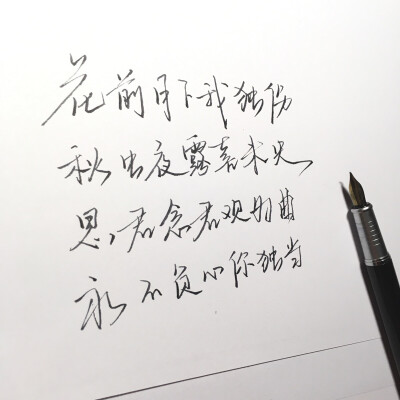 花前月下我独伤
秋虫夜露喜未央
思君念君观曲
永不负心你独当